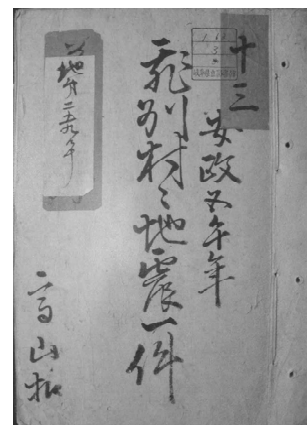 十三
安政五午年
飛刕村々地震一件
高山扣